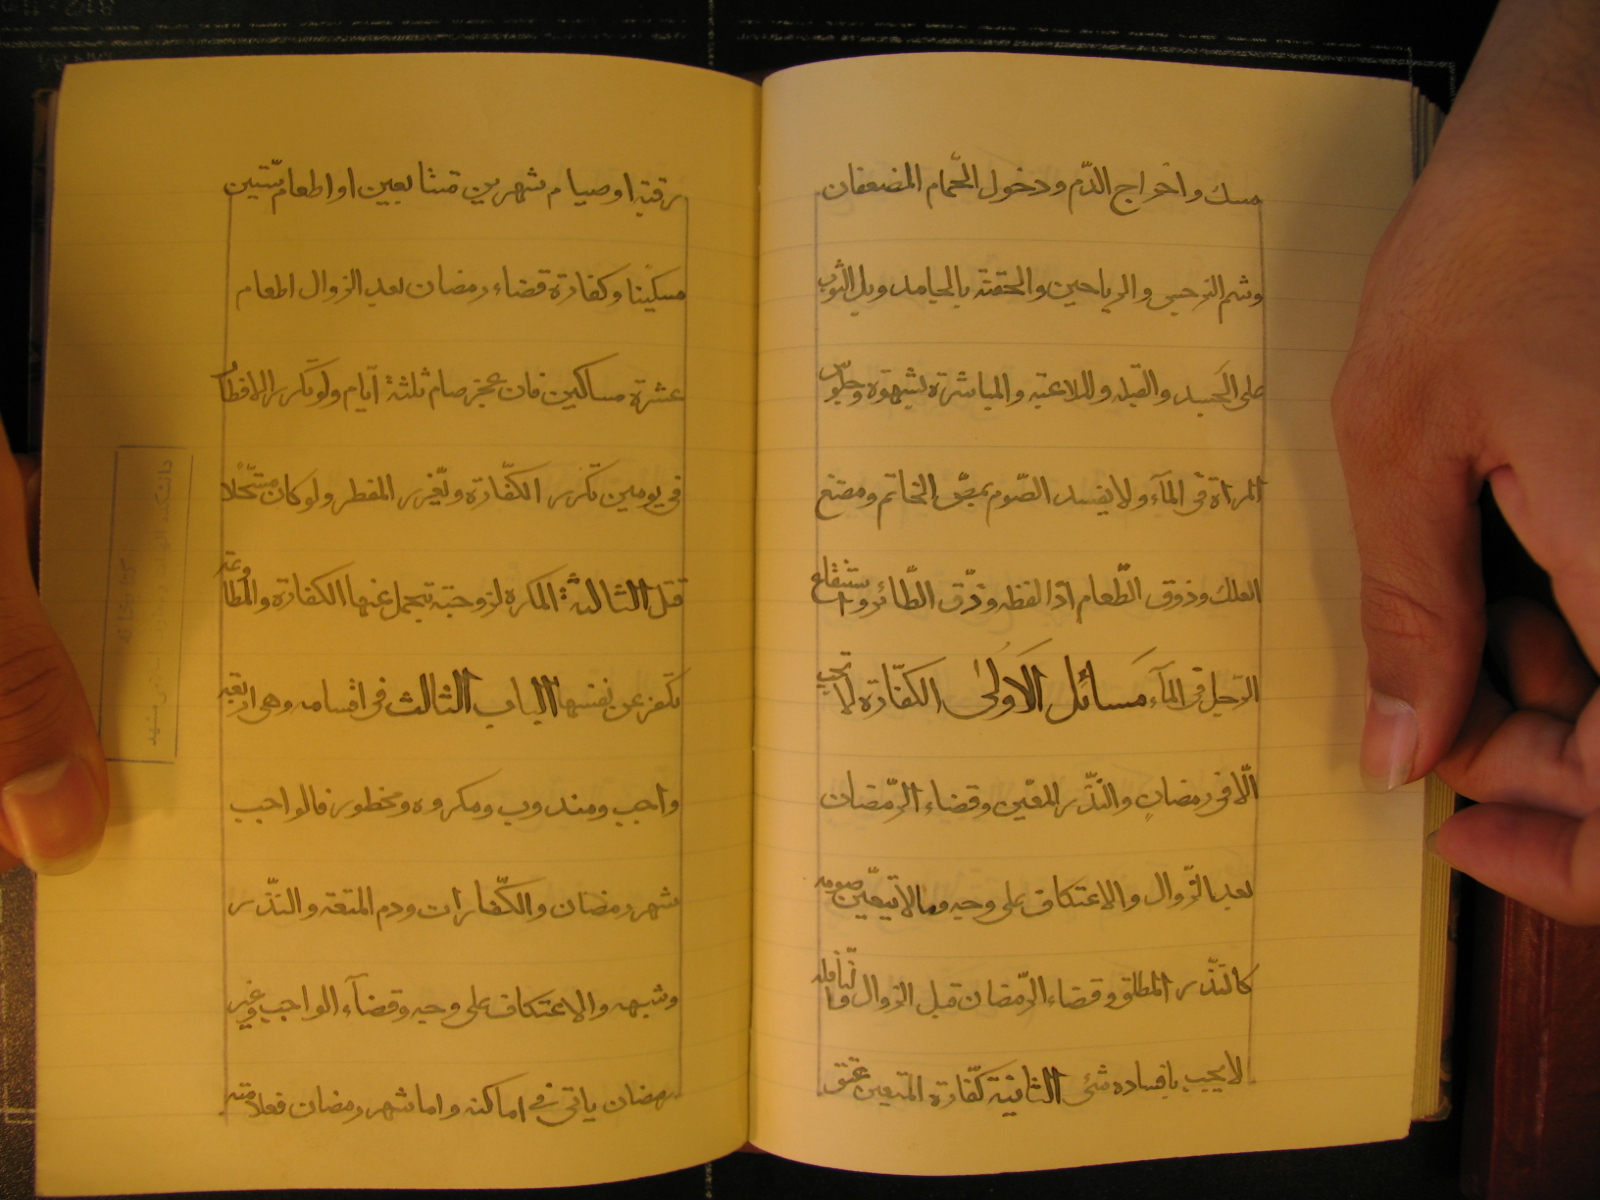 مسك واخراج الدّم ودخول الحّمام المضعفان
وشم النرجس والرياحين والحقنه بالجامد وبل الثوب
على الجسد والقبله والملاعبه والمباشرة بشهوة وجلوس
المرءة فى المآء ولا يفسد الصّوم بمصّ الخاتم ومضغ
العلك وذوق الطّعام اذا لفظه وذّق الطّائر واستنقاع
الرّجل فى المآء مسائل الاولىٰ الكفّارة لا تجب
الّا فى رمضان والنذّر المعّين وقضاء الرّمضان
بعد الزّوال والاعتكاف على وجه وما لا تيعّين صومه
كالنّذر المطلق وقضاء الرّمضان قبل الزوال والنّافله
لا يجب بافساده شئ الثانية كفّارة المتعين عتق
رقبة او صيام شهرين متتابعين او اطعام ستّين
مسكينا وكفارة قضاء رمضان بعد الزوال اطعام
عشرة مساكين فان عجز صام ثلثة ايّام ولو تكرر الافطار
فى يومين تكّرر الكفّارة ويعّزر المفطر ولو كان مستحّلا
قتل الثالثة المكره لزوجته تيحمل عنها الكفارة والمطاوعه
تكفر عن نفسها الباب الثالث فى اقسامه وهى اربعة
واجب ومندوب ومكروه ومحظور فالواجب
شهر رمضان والكّفارات ودم المتعة والنذّر
وشبهه والاعتكاف على وجه وقضآء الواجب وغير
رمضان ياتى فى اماكنه واما شهر رمضان فعلامته
كتابخانه
دانشكده الهيات و معارف اسلامى مشهد